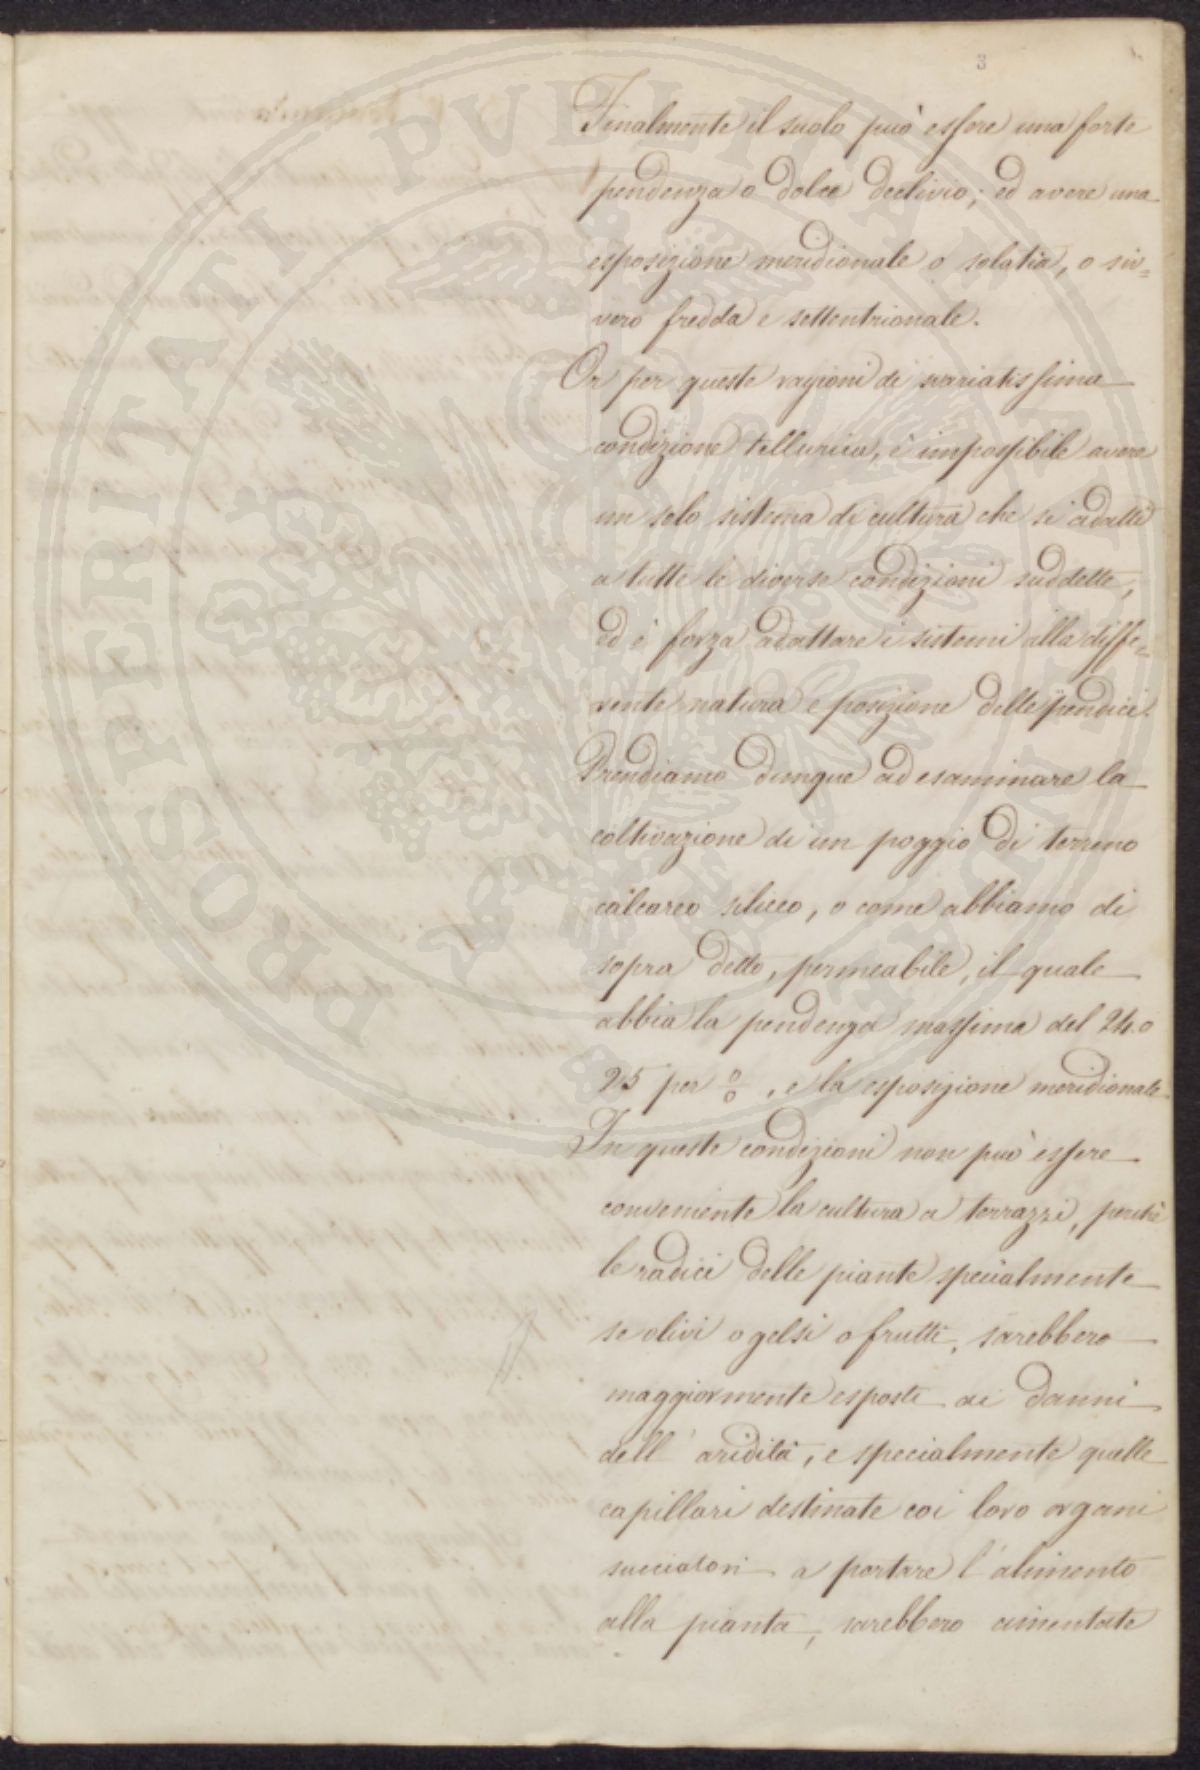 3
Finalmente il suolo può essere una forte
pendenza o dolce declivio; ed avere una
esposizione meridionale o solatia, o siv=
vero fredda e settentrionale.
Or per queste ragioni di svariatissima
condizione tellurica, è impossibile avere
un solo sistema di cultura che si adatti
a tutte le diverse condizioni suddette,
ed è forza adattare i sistemi alla diffe=
rente natura e posizione delle pendici.
Prendiamo dunque ad esaminare la
coltivazione di un poggio di terreno
calcareo siliceo, o come abbiamo di
sopra detto, permeabile, il quale
abbia la pendenza massima del 24. o
25 per %, e la esposizione meridionale.
In queste condizioni non può essere
conveniente la cultura a terrazzi, perchè
le radici delle piante specialmente
se olivi o gelsi o frutti, sarebbero
maggiormente esposte ai danni
dell'aridità, e specialmente quelle
capillari destinate coi loro organi
succiatori a portare l'alimento
alla pianta, sarebbero cimentate
PROSPERITATI PVBLICAE AVGENDAE